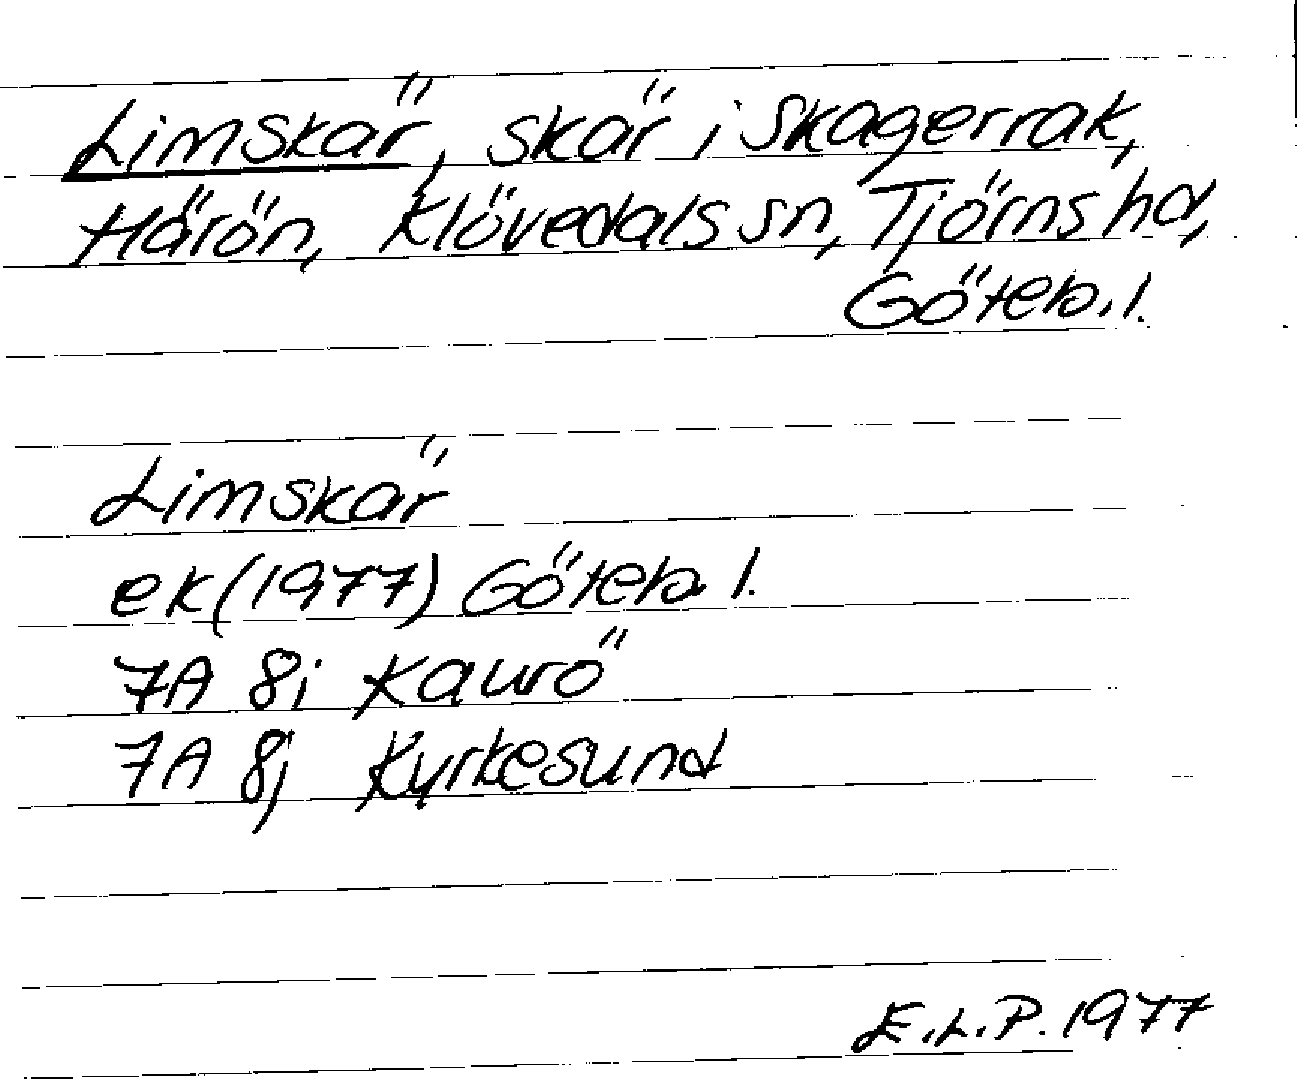 Limskär, skär i Skagerrak,
Härön, Klövedals sn, Tjörns hd,
Göteb. l.
Limskär
ek (1977) Göteb l.
7A 8i Kaurö
7A 8j Kyrkesund
E.L.P. 1977